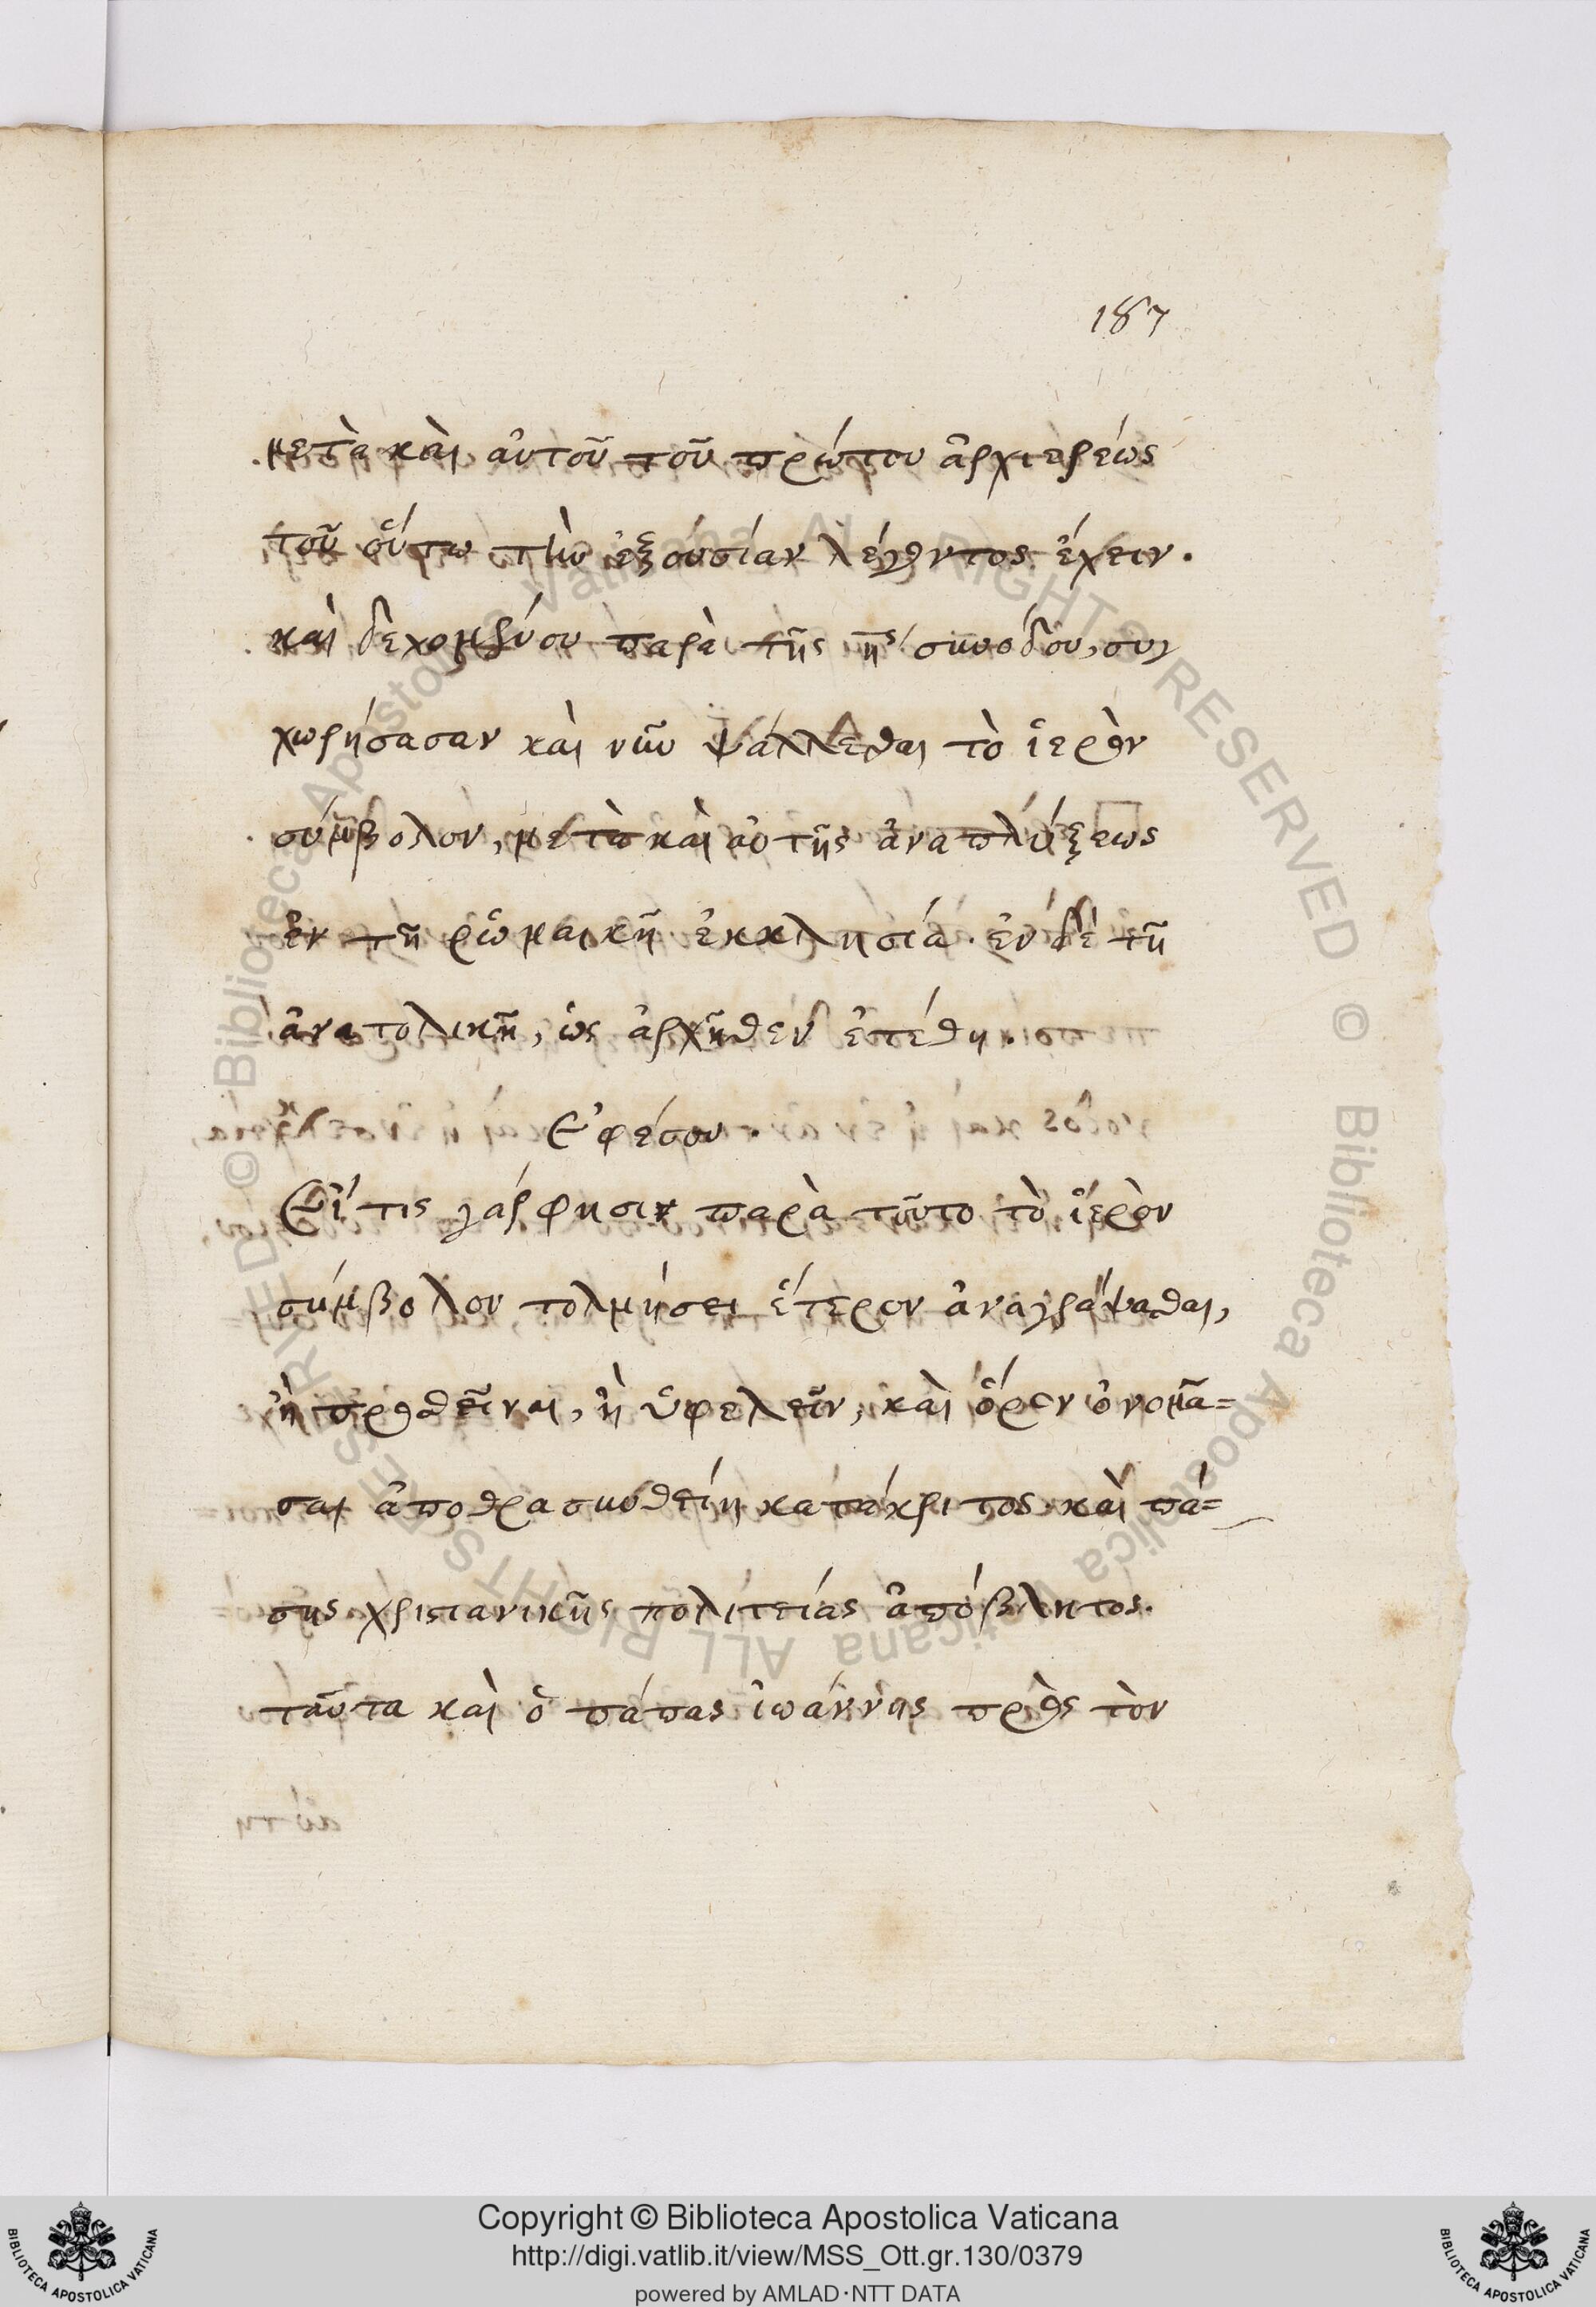 187
μετὰ καὶ αὐτοῦ τοῦ πρώτου ἀρχιερέως
τοῦ οὕτω τὴν ἐξουσίαν λέγοντος ἔχειν.
καὶ δεχομένου παρὰ τῆς ης´ συνόδου, συγ
χωρήσασαν καὶ νῦν ψάλλεσθαι τὸ ἱερὸν
σύμβολον, μετὰ καὶ αὐτῆς ἀναπλύξεως
ἐν τῇ ῥωμαικῇ ἐκκλησία. ἐν δὲ τῇ
ἀνατολικῇ, ὡς ἀρχῆθεν ἐτέθη.
Ἐφέσου.
Εἴ τις γάρ φησιν παρὰ τοῦτο τὸ ἱερὸν
σύμβολον τολμήσει ἕτερον ἀναγράψασθαι,
ἢ προσθεῖναι, ἢ ὑφελεῖν, καὶ ὅρον ὀνομά=
σαι ἀποθρασυνθείη κατάκριτος καὶ πά=
σης χριστιανικῆς πολιτείας ἀπόβλητος.
ταῦτα καὶ ὁ πάπας ἰωάννης πρὸς τὸν
Copyright © Biblioteca Apostolica Vaticana
http://digi.vatlib.it/view/MSS_Ott.gr.130/0379
powered by AMLAD·NTT DATA
BIBLIOTECA APOSTOLICA VATICANA
BIBLIOTECA APOSTOLICA VATICANA
© Biblioteca Apostolica Vaticana ALL RIGHTS RESERVED
© Biblioteca Apostolica Vaticana ALL RIGHTS RESERVED